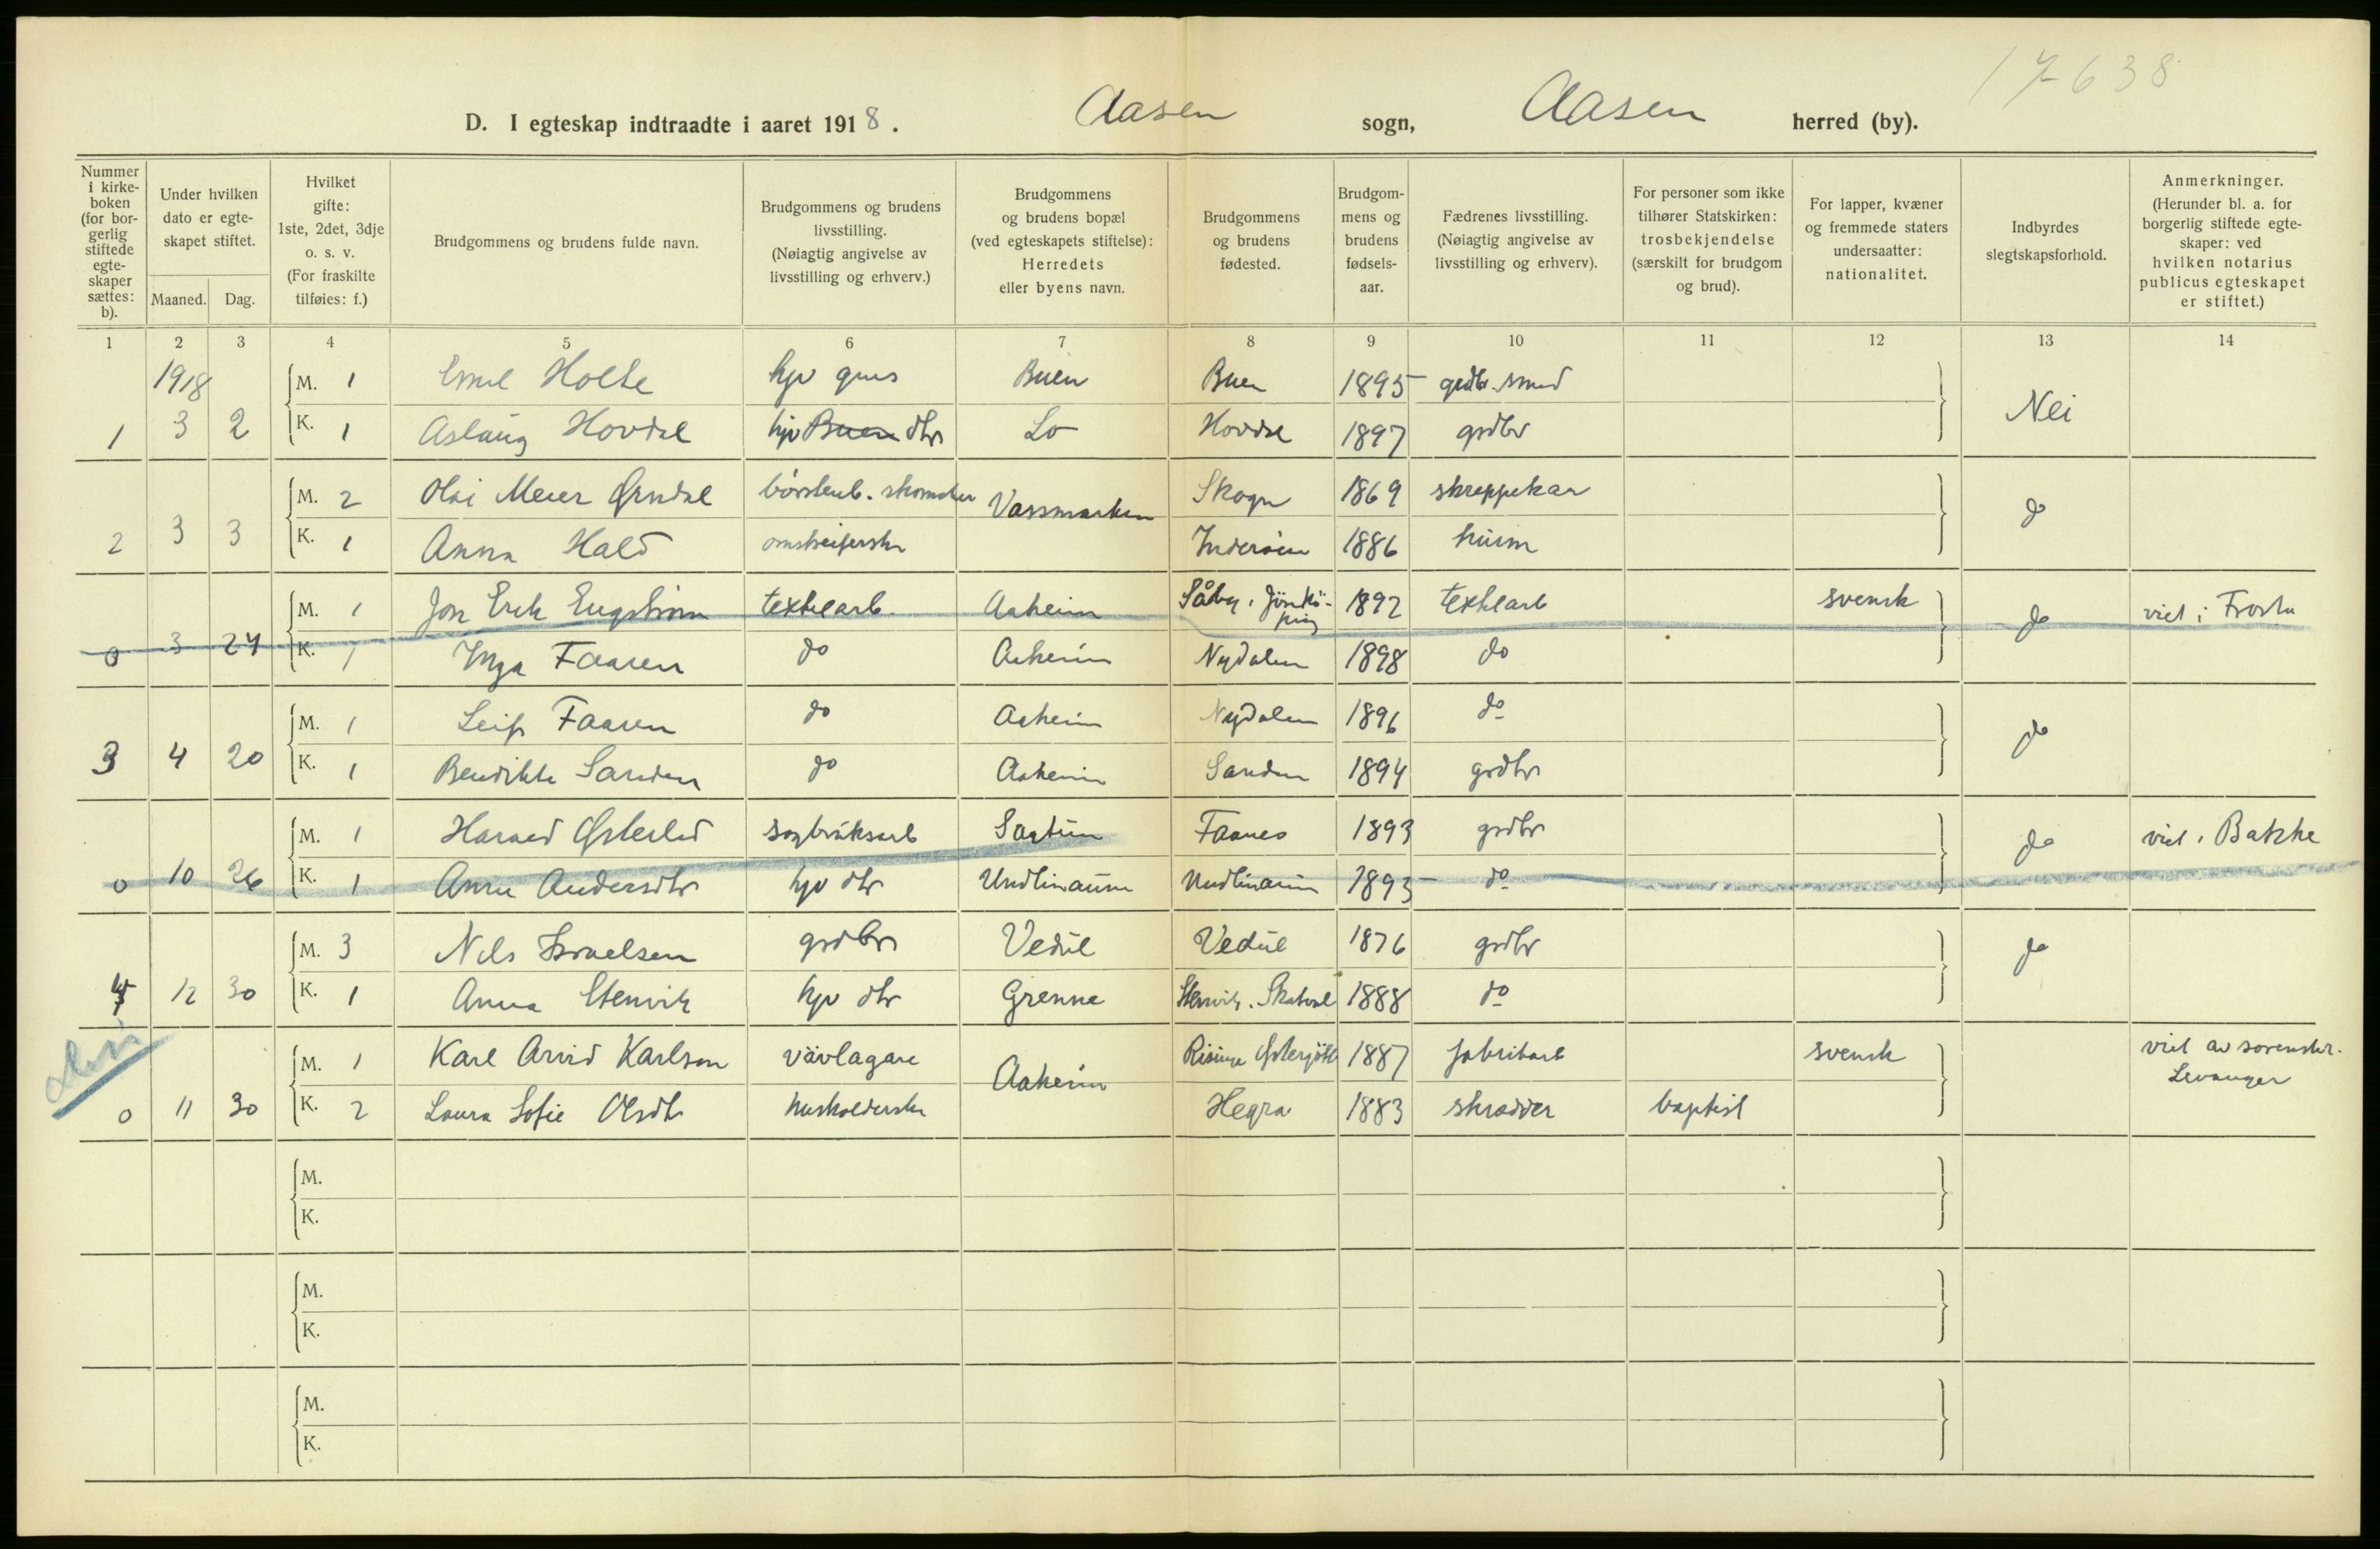 17638
D. I egteskap indtraadte i aaret 1918. Aasen sogn, Aasen herred (by).
Nummer i kirke- boken (for bor- gerlig stiftede egte- skaper sættes: b).
Under hvilken dato er egte- skapet stiftet.
Maaned. Dag.
Hvilket gifte: 1ste, 2det, 3dje o. s. v. (For fraskilte tilføies: f.)
Brudgommens og brudens fulde navn.
Brudgommens og brudens livsstilling. (Nøiagtig angivelse av livsstilling og erhverv.)
Brudgommens og brudens bopæl (ved egteskapets stiftelse): Herredets eller byens navn.
Brudgommens og brudens fødested.
Brudgom- mens og brudens fødsels- aar.
Fædrenes livsstilling. (Nøiagtig angivelse av livsstilling og erhverv).
For personer som ikke tilhører Statskirken: trosbekjendelse (særskilt for brudgom og brud).
For lapper, kvæner og fremmede staters undersaatter: nationalitet.
Indbyrdes slegtskapsforhold.
Anmerkninger. (Herunder bl. a. for borgerlig stiftede egte- skaper: ved hvilken notarius publicus egteskapet er stiftet.)
1 2 3 4 5 6 7 8 9 10 11 12 13 14
1918 M. 1 Emil Holte hjv Buen Buen 1895 grdbr. smed
1 3 2 K. 1 Aslaug Hovdal hjv Buen dtr Lo Hovdal 1897 grdbr Nei
M. 2 Olai Meier Ørndal Vassmarken Skogn 1869 skreppekar
2 3 3 K. 1 Anna Hald Inderøen 1886 husm do
M. 1 Jon Erik Engstrøm textilarb. Aaheim Såby, Jönkö- ping 1892 textilarb svensk viet i Frosta
0 3 24 K. 1 Inga Faaren do Aaheim Nydalen 1898 do do
M. 1 Leif Faaren do Aaheim Nydalen 1896 do
3 4 20 K. 1 Bendikte Sanden do Aaheim Sanden 1894 grdbr do
M. 1 Harald Østerlid sagbruksarb Sagtun Faanes 1893 grdbr viet i Bakke
0 10 26 K. 1 Anna Andersdtr hjv dtr Undlinaunn Undlinaunn 1893 do do
M. 3 Nils Israelsen grdbr Vedul Vedul 1876 grdbr do
4 12 30 K. 1 Anna Stenvik hjv dtr Grenne Stenvik, Skatval 1888 do
M. 1 Karl Arvid Karlson vävlagare Aaheim Risinge Østergötl 1887 fabrikarb svensk viet av sorenskr. Levanger
0 11 30 K. 2 Laura Sofie Olsdtr husholderske Hegra 1883 skrædder baptist
M.
K.
M.
K.
M.
K.